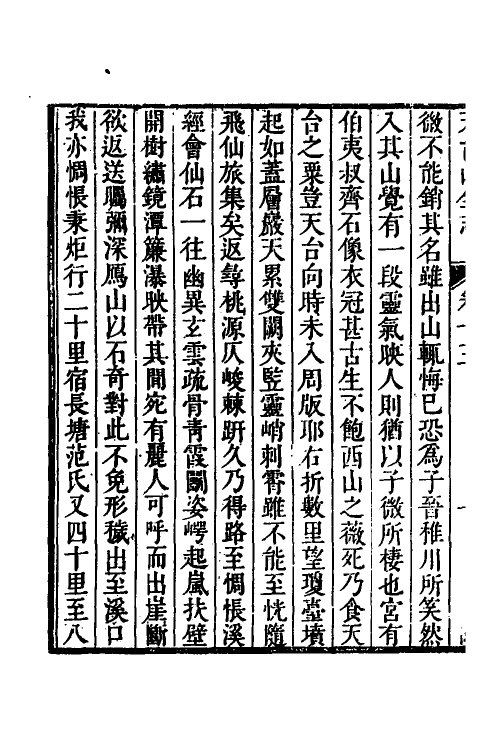 微不能銷其名雖出山輒悔已恐為子晉稚川所笑然
入其山覺有一段靈氣映人則猶以子微所棲也宮有
伯夷叔齊石像衣冠甚古生不飽西山之薇死乃食天
台之粟豈天台向時未入周版耶右折數里望瓊臺墳
起如蓋層巖天累雙闕夾竪靈峭刺霄雖不能至恍隨
飛仙旅集矣返尋桃源仄峻棘趼久乃得路至惆悵溪
經會仙石一往幽異玄雲疏骨靑霞鬬姿崿起嵐扶壁
開樹繡鏡潭簾瀑映帶其間宛有麗人可呼而出崖斷
欲返送矚彌深鴈山以石奇對此不免形穢出至溪口
我亦惆悵秉炬行二十里宿長塘范氏又四十里至八